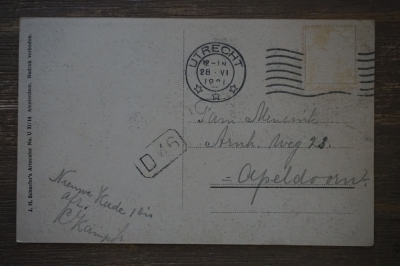 J. H. Schaefer's Artcentre No. U 37/14 Amsterdam. Nadruk verboden.
UTRECHT
12-1N
28 · VI
1921
Fam Mensink
Arnh. Weg 23.
= Apeldoorn.
D
Nieuwe Kade 1 bis
afz.
Kamp